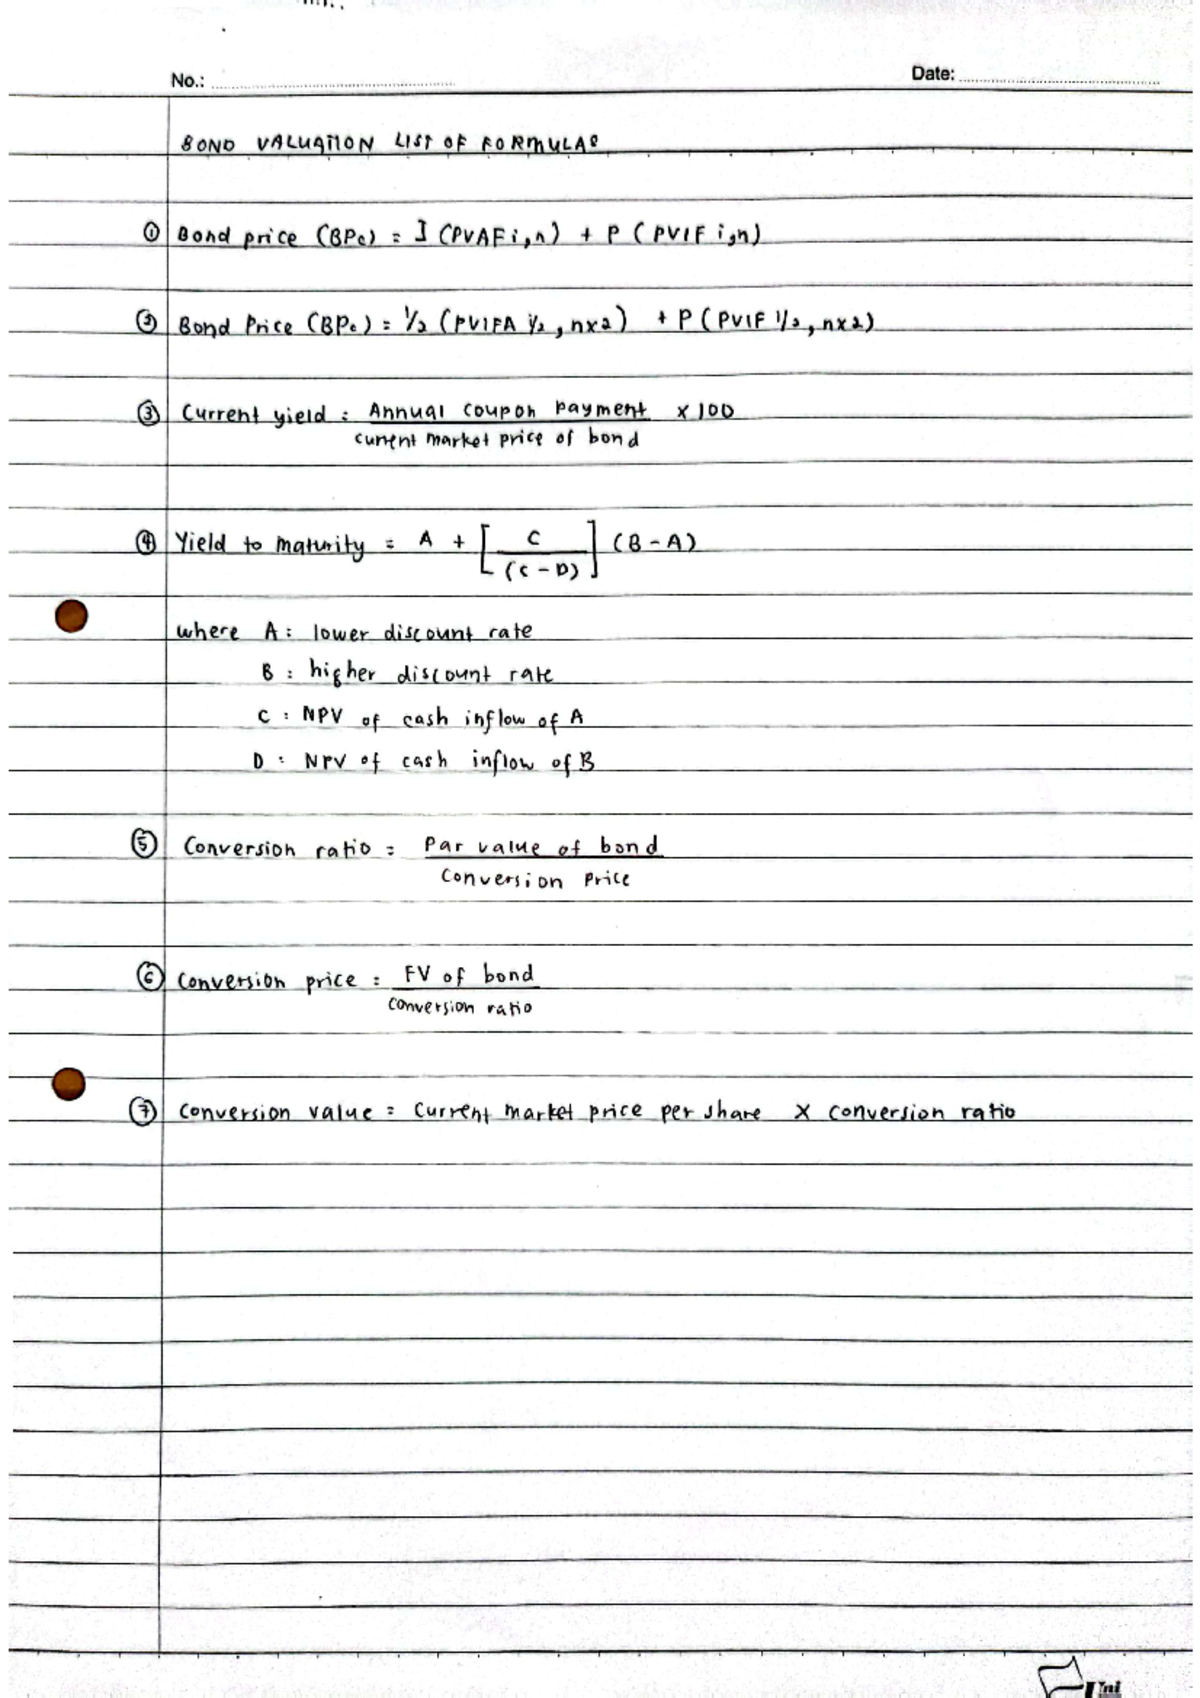 No.:
Date:
BOND VALUATION LIST OF FORMULAS
① Bond price (BPo) = I (PVAF i,n) + P (PVIF i,n)
② Bond Price (BPo) = 1/2 (PVIFA i/2, nx2) + P (PVIF i/2, nx2)
③ Current yield = Annual coupon payment x 100
current market price of bond
④ Yield to maturity = A + [ C (B - A)
(C - D) ]
where A : lower discount rate
B : higher discount rate
C : NPV of cash inflow of A
D : NPV of cash inflow of B
⑤ Conversion ratio = Par value of bond
Conversion Price
⑥ Conversion price = FV of bond
conversion ratio
⑦ Conversion value = Current market price per share X conversion ratio
Uni